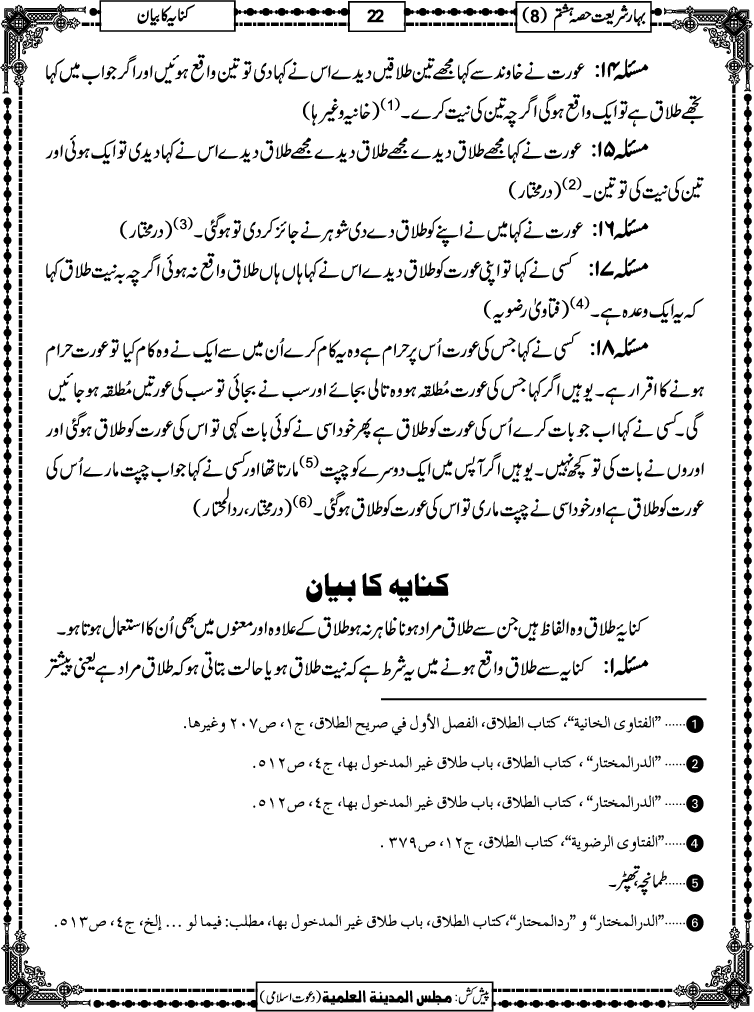 بہار شریعت حصہ ہشتم (8)
22
کنایہ کا بیان
مسئلہ ۱۴: عورت نے خاوند سے کہا مجھے تین طلاقیں دیدے اس نے کہا دی تو تین واقع ہوئیں اور اگر جواب میں کہا
تجھے طلاق ہے تو ایک واقع ہوگی اگرچہ تین کی نیت کرے۔(1) (خانیہ وغیرہا)
مسئلہ ۱۵: عورت نے کہا مجھے طلاق دیدے مجھے طلاق دیدے مجھے طلاق دیدے اس نے کہا دیدی تو ایک ہوئی اور
تین کی نیت کی تو تین۔(2) (درمختار)
مسئلہ ۱۶: عورت نے کہا میں نے اپنے کو طلاق دے دی شوہر نے جائز کر دی تو ہوگئی۔(3) (درمختار)
مسئلہ ۱۷: کسی نے کہا تو اپنی عورت کو طلاق دیدے اس نے کہا ہاں ہاں طلاق واقع نہ ہوئی اگرچہ بہ نیت طلاق کہا
کہ یہ ایک وعدہ ہے۔(4) (فتاویٰ رضویہ)
مسئلہ ۱۸: کسی نے کہا جس کی عورت اُس پر حرام ہے وہ یہ کام کرے اُن میں سے ایک نے وہ کام کیا تو عورت حرام
ہونے کا اقرار ہے۔ یوہیں اگر کہا جس کی عورت مُطلقہ ہو وہ تالی بجائے اور سب نے بجائی تو سب کی عورتیں مُطلقہ ہو جائیں
گی۔ کسی نے کہا اب جو بات کرے اُس کی عورت کو طلاق ہے پھر خود اسی نے کوئی بات کہی تو اس کی عورت کو طلاق ہوگئی اور
اوروں نے بات کی تو کچھ نہیں۔ یوہیں اگر آپس میں ایک دوسرے کو چپت(5) مارتا تھا اور کسی نے کہا جو اب چپت مارے اُس کی
عورت کو طلاق ہے اور خود اسی نے چپت ماری تو اس کی عورت کو طلاق ہوگئی۔(6) (درمختار، ردالمحتار)
کنایہ کا بیان
کنایۂ طلاق وہ الفاظ ہیں جن سے طلاق مراد ہونا ظاہر نہ ہو طلاق کے علاوہ اور معنوں میں بھی اُن کا استعمال ہوتا ہو۔
مسئلہ ۱: کنایہ سے طلاق واقع ہونے میں یہ شرط ہے کہ نیت طلاق ہو یا حالت بتاتی ہو کہ طلاق مراد ہے یعنی پیشتر
1......”الفتاوى الخانية“، كتاب الطلاق، الفصل الأول في صريح الطلاق، ج۱، ص۲۰۷ وغيرها.
2......”الدرالمختار“ ، كتاب الطلاق، باب طلاق غير المدخول بها، ج٤، ص٥١٢.
3......”الدرالمختار“ ، كتاب الطلاق، باب طلاق غير المدخول بها، ج٤، ص٥١٢.
4......”الفتاوى الرضوية“، كتاب الطلاق، ج١٢، ص٣٧٩ .
5......طمانچہ، تھپڑ۔
6......”الدرالمختار“ و ”ردالمحتار“، كتاب الطلاق، باب طلاق غير المدخول بها، مطلب: فيما لو ... إلخ، ج٤، ص٥١٣.
پیش کش: مجلس المدينة العلمية (دعوت اسلامی)